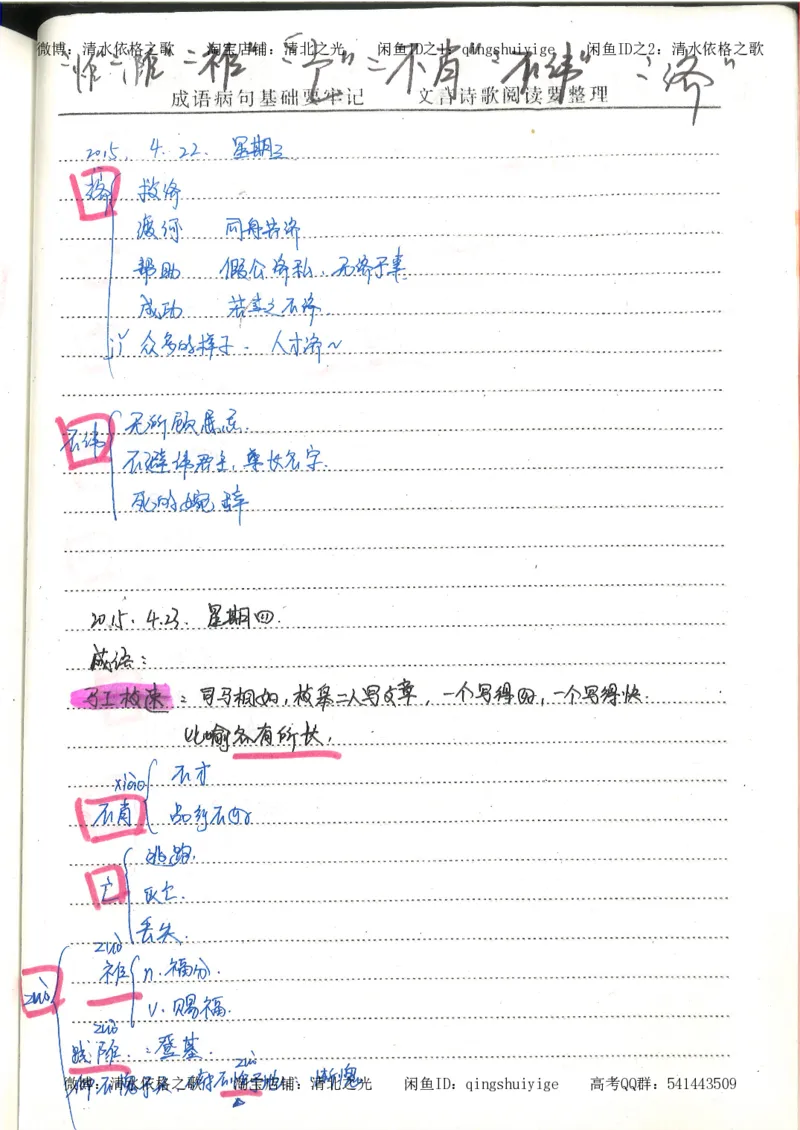 微博：清水依格之歌 淘宝店铺：清北之光 闲鱼ID之1：qingshuiyige 闲鱼ID之2：清水依格之歌
"怍""阼""祚""亡""不肖""不讳""济"
成语病句基础要牢记 文言诗歌阅读要整理
2015. 4. 22. 星期三
济 救济
渡河 同舟共济
帮助 假公济私、无济于事
成功 若事之不济
jǐ 众多的样子. 人才济~
不讳 无所顾忌.
不避讳君主、尊长名字.
死的婉辞
2015. 4.23. 星期四.
成语：
马工枚速：司马相如，枚皋二人写文章，一个写得四，一个写得快.
比喻各有所长.
xiào 不才
不肖 品行不好
亡 逃跑.
死亡.
丢失.
zuò
zuò 祚 n. 福分.
v. 赐福.
zuò
践阼：登基.
zuò
仰不愧于天，俯不怍于地 惭愧
微博：清水依格之歌 淘宝店铺：清北之光 闲鱼ID：qingshuiyige 高考QQ群：541443509